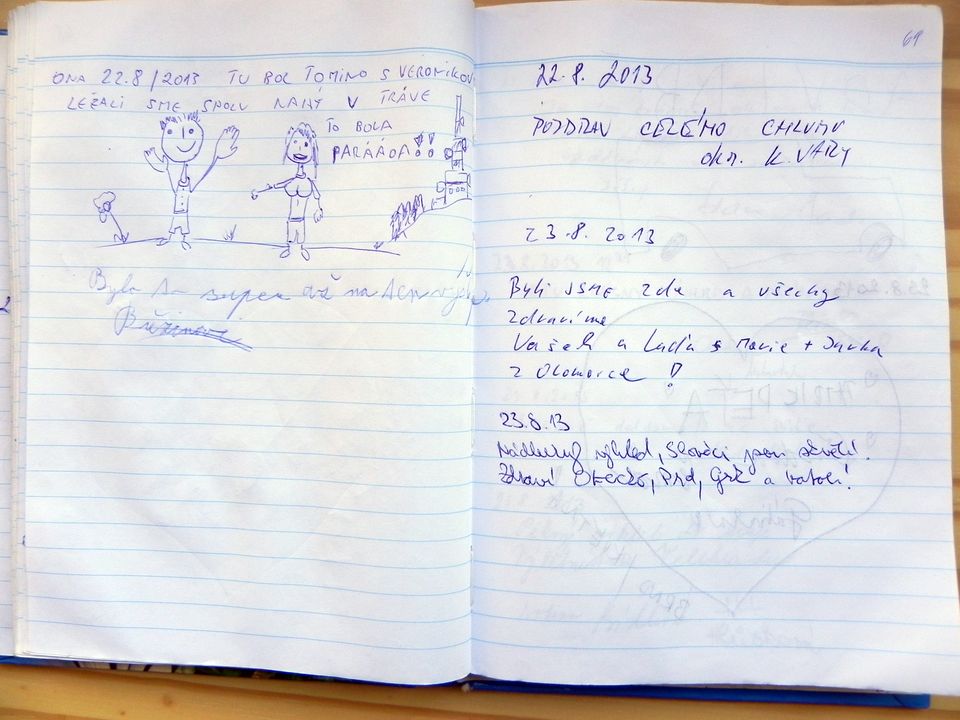 DŇA 22.8/2013 TU BOL TOMINO S VERONIKOU
LEŽALI SME SPOLU NAHÝ V TRÁVE
TO BOLA
PARÁÁDA!!
Byla
super až na
69
22.8. 2013
POZDRAV CELÉMO CHLUMU
okr. K. VARY
23.8. 2013
Byli JSME zde a všechy
zdravíme
Vašek a Laďa s Marie + Janka
z Olomouce !
23.8.13
Nádherný výhled, Slováci jsou skvělí!
Zdraví Otečko, Prd, a !